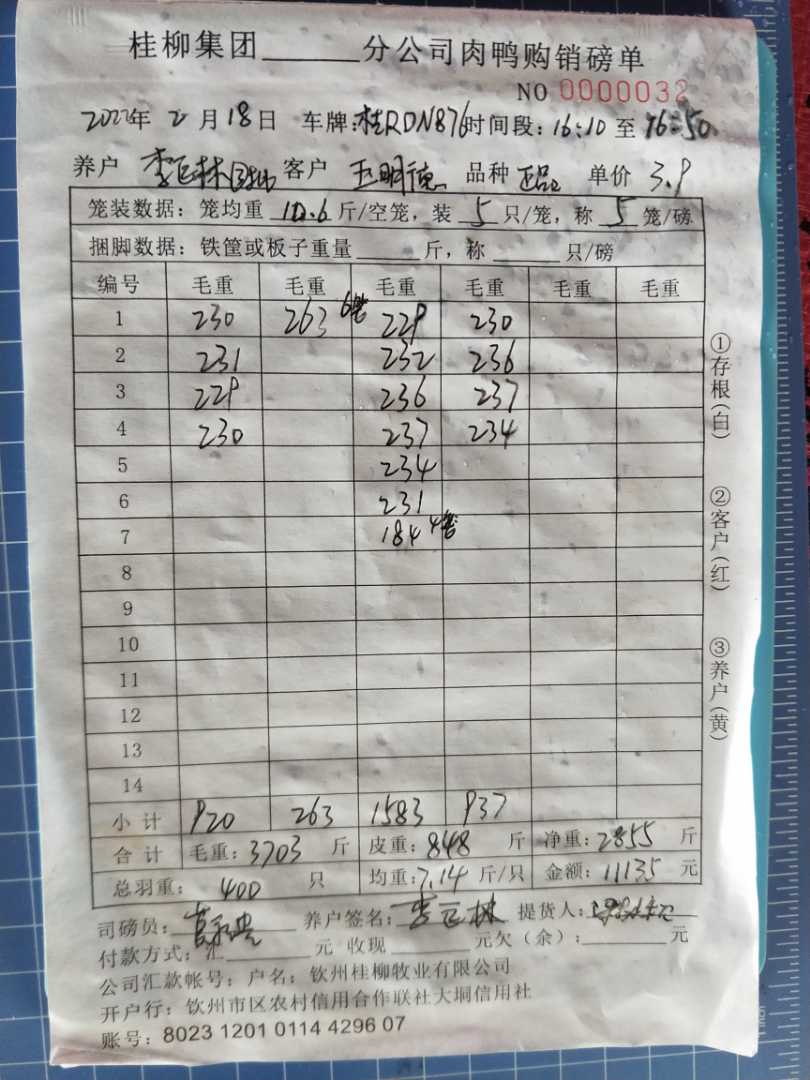 桂柳集团______分公司肉鸭购销磅单
NO 0000032
2022年 2月18日 车牌:桂RDN876 时间段:16:10 至 16:50
养户 李巨林 客户 玉明德 品种 正品 单价 3.9
笼装数据:笼均重 10.6 斤/空笼,装 5 只/笼,称 5 笼/磅
捆脚数据:铁筐或板子重量______斤,称______只/磅
编号 毛重 毛重 毛重 毛重 毛重 毛重
1 230 263 6笼 229 230
2 231 232 236
3 229 236 237
4 230 237 234
5 234
6 231
7 184 4笼
8
9
10
11
12
13
14
小计 920 263 1583 937
合计 毛重:3703 斤 皮重:848 斤 净重:2855 斤
总羽重: 400 只 均重:7.14 斤/只 金额:11135 元
司磅员: 养户签名:李巨林 提货人:
付款方式:汇______元 收现______元欠(余):______元
公司汇款帐号:户名:钦州桂柳牧业有限公司
开户行:钦州市区农村信用合作联社大垌信用社
账号:8023 1201 0114 4296 07
①存根(白)
②客户(红)
③养户(黄)